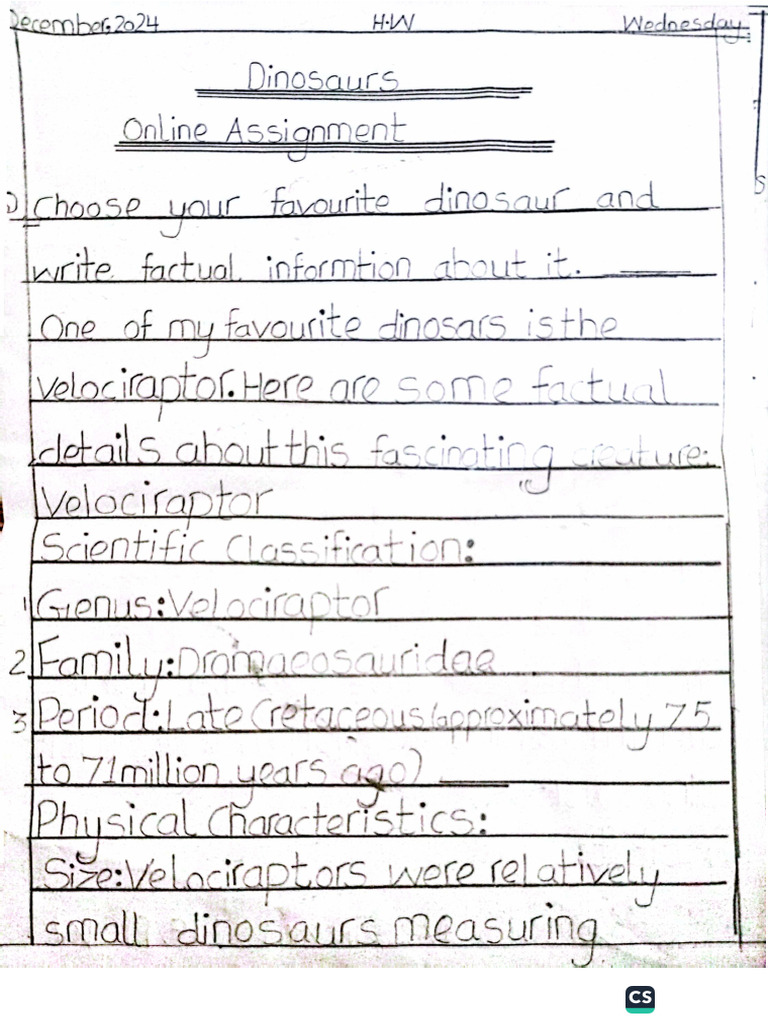 December,2024 H.W Wednesday
Dinosaurs
Online Assignment
Choose your favourite dinosaur and
write factual informtion about it.
One of my favourite dinosars is the
velociraptor. Here are some factual
details about this fascinating creature:
Velociraptor
Scientific Classification:
1 Genus: Velociraptor
2 Family: Dromaeosauridae
3 Period: Late Cretaceous (approximately 75
to 71 million years ago)
Physical Characteristics:
Size: Velociraptors were relatively
small dinosaurs measuring
CS